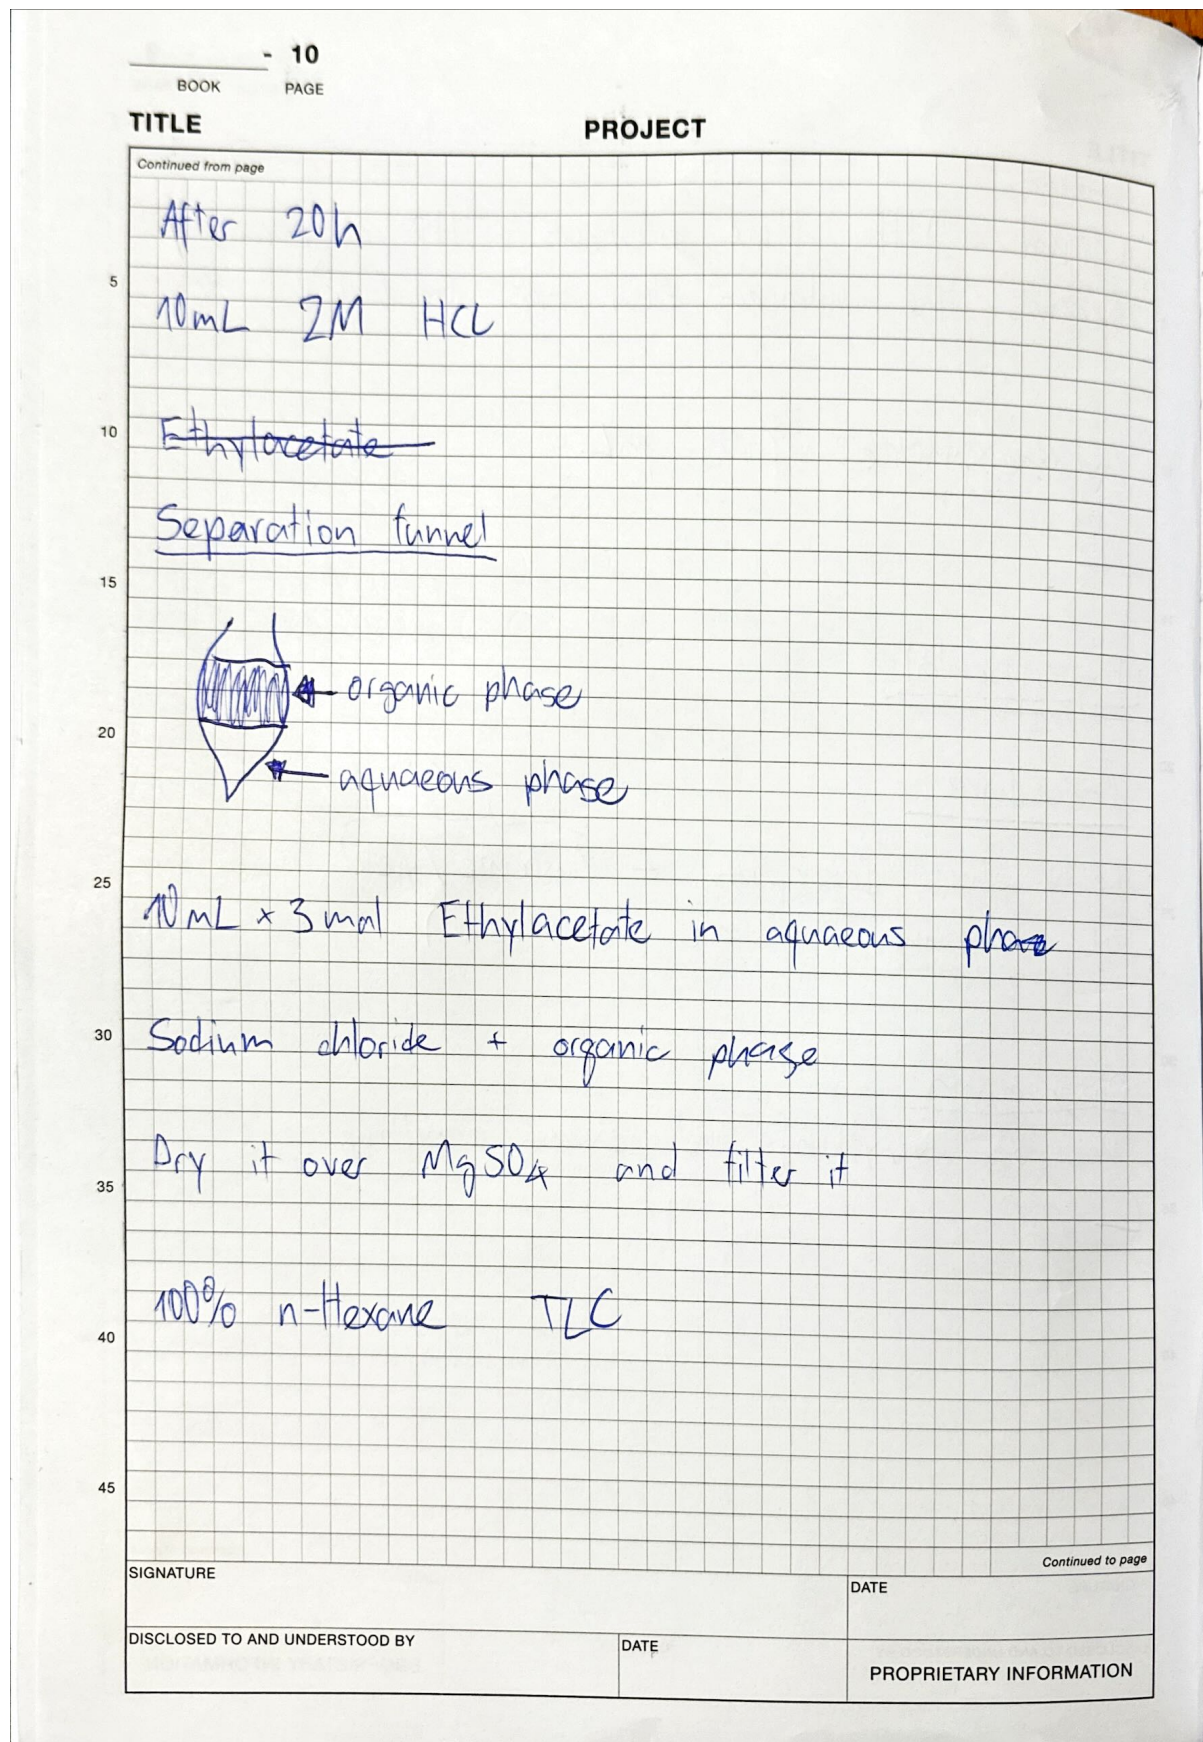 - 10
BOOK PAGE
TITLE PROJECT
Continued from page
After 20h
5
10mL 2M HCL
10
Ethylacetate
Separation funnel
15
organic phase
20
aquaeous phase
25
10mL x 3 mal Ethylacetate in aquaeous phase
30
Sodium chloride + organic phase
Dry it over MgSO4 and filter it
35
100% n-Hexane TLC
40
45
Continued to page
SIGNATURE
DATE
DISCLOSED TO AND UNDERSTOOD BY
DATE
PROPRIETARY INFORMATION